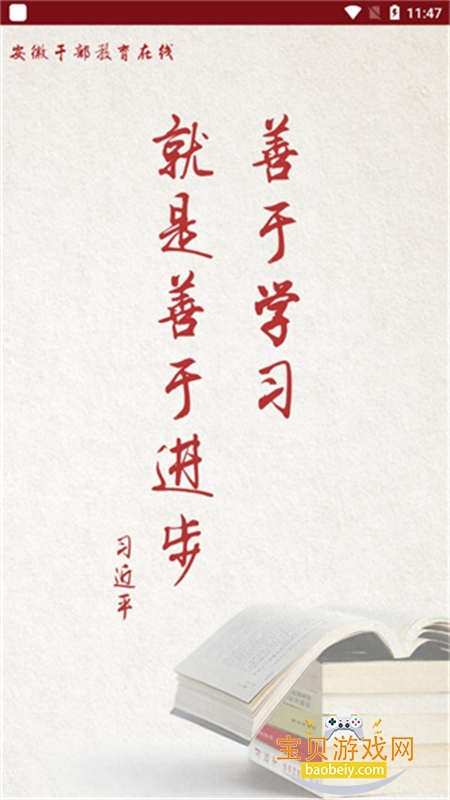 11:47
安徽干部教育在线
善于学习
就是善于进步
习近平
宝贝游戏网
baobeiy.com